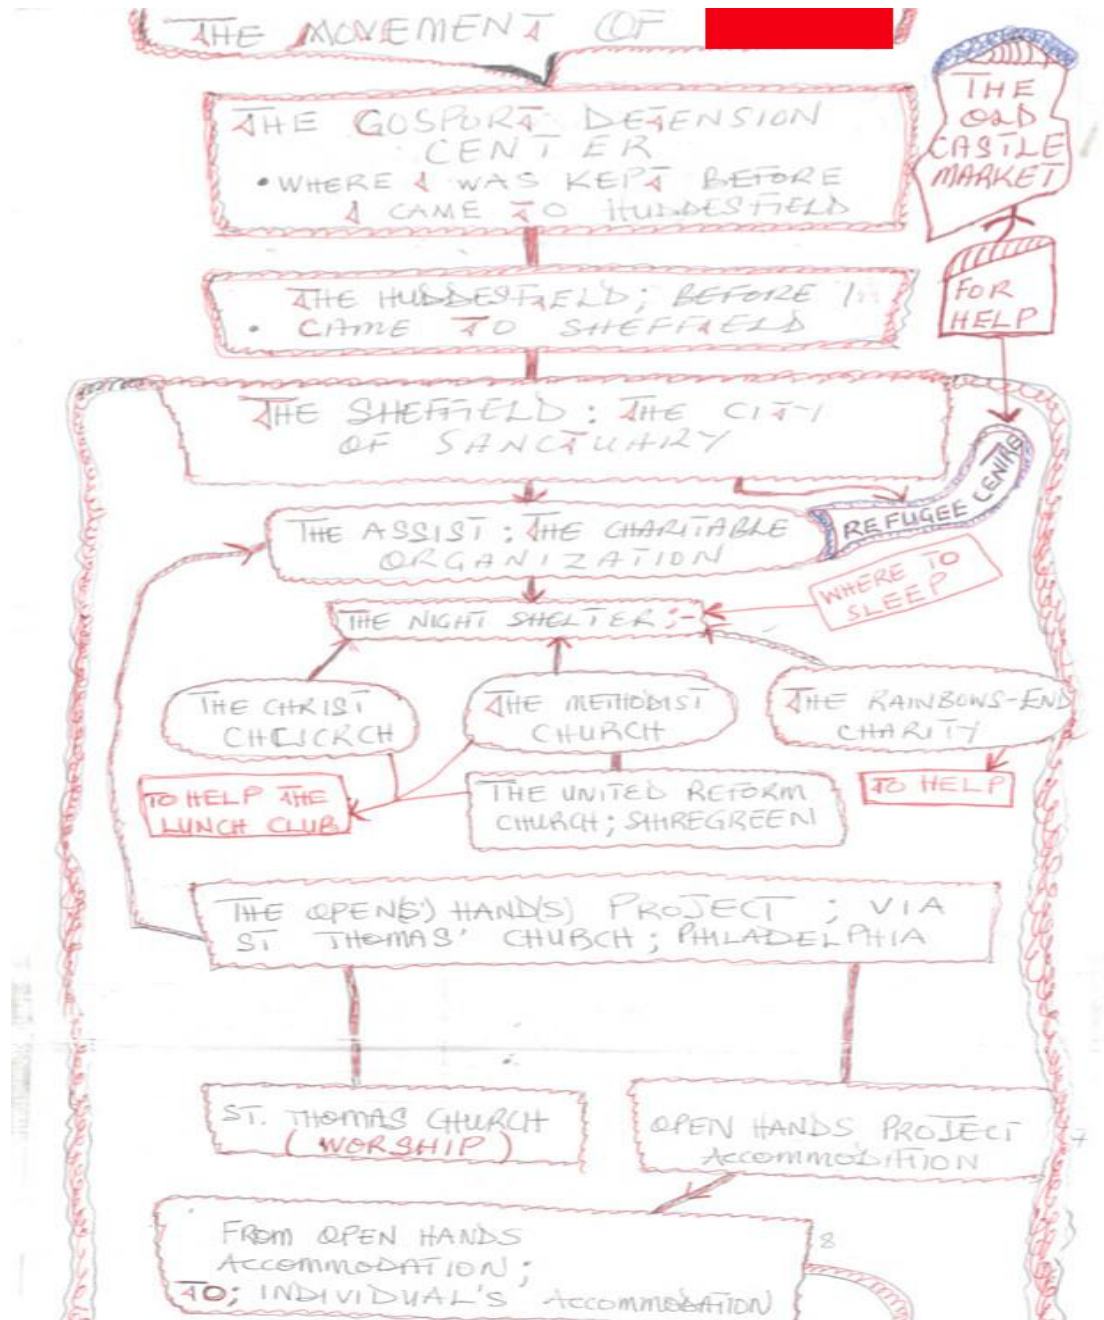 THE MOVEMENT OF
THE GOSPORT DETENSION
CENTER
• WHERE I WAS KEPT BEFORE
I CAME TO HUDDESFIELD
THE
OLD
CASTLE
MARKET
FOR
HELP
THE HUDDESFIELD; BEFORE I
• CAME TO SHEFFIELD
THE SHEFFIELD: THE CITY
OF SANCTUARY
REFUGEE CENTRE
THE ASSIST: THE CHARITABLE
ORGANIZATION
WHERE TO
SLEEP
THE NIGHT SHELTER:-
THE CHRIST
CHURCH
THE METHODIST
CHURCH
THE RAINBOWS-END
CHARITY
TO HELP THE
LUNCH CLUB
THE UNITED REFORM
CHURCH; SHIREGREEN
TO HELP
THE OPEN(S') HAND(S) PROJECT; VIA
ST THOMAS' CHURCH; PHILADELPHIA
ST. THOMAS CHURCH
(WORSHIP)
OPEN HANDS PROJECT
ACCOMMODATION
7
FROM OPEN HANDS
ACCOMMODATION;
TO; INDIVIDUAL'S ACCOMMODATION
8